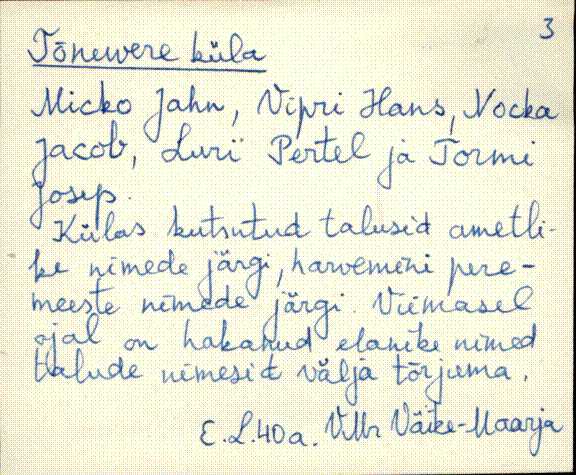 3
Tõnuvere küla
Micko Jahn, Vipri Hans, Nocka
Jacob, Luri Pertel ja Tormi
Josep.
Külas kutsutud talusid ametli-
ke nimede järgi, harvemini pere-
meeste nimede järgi. Viimasel
ajal on hakanud elanike nimed
talude nimesid välja tõrjuma.
E.L. 40a. VMr Väike-Maarja